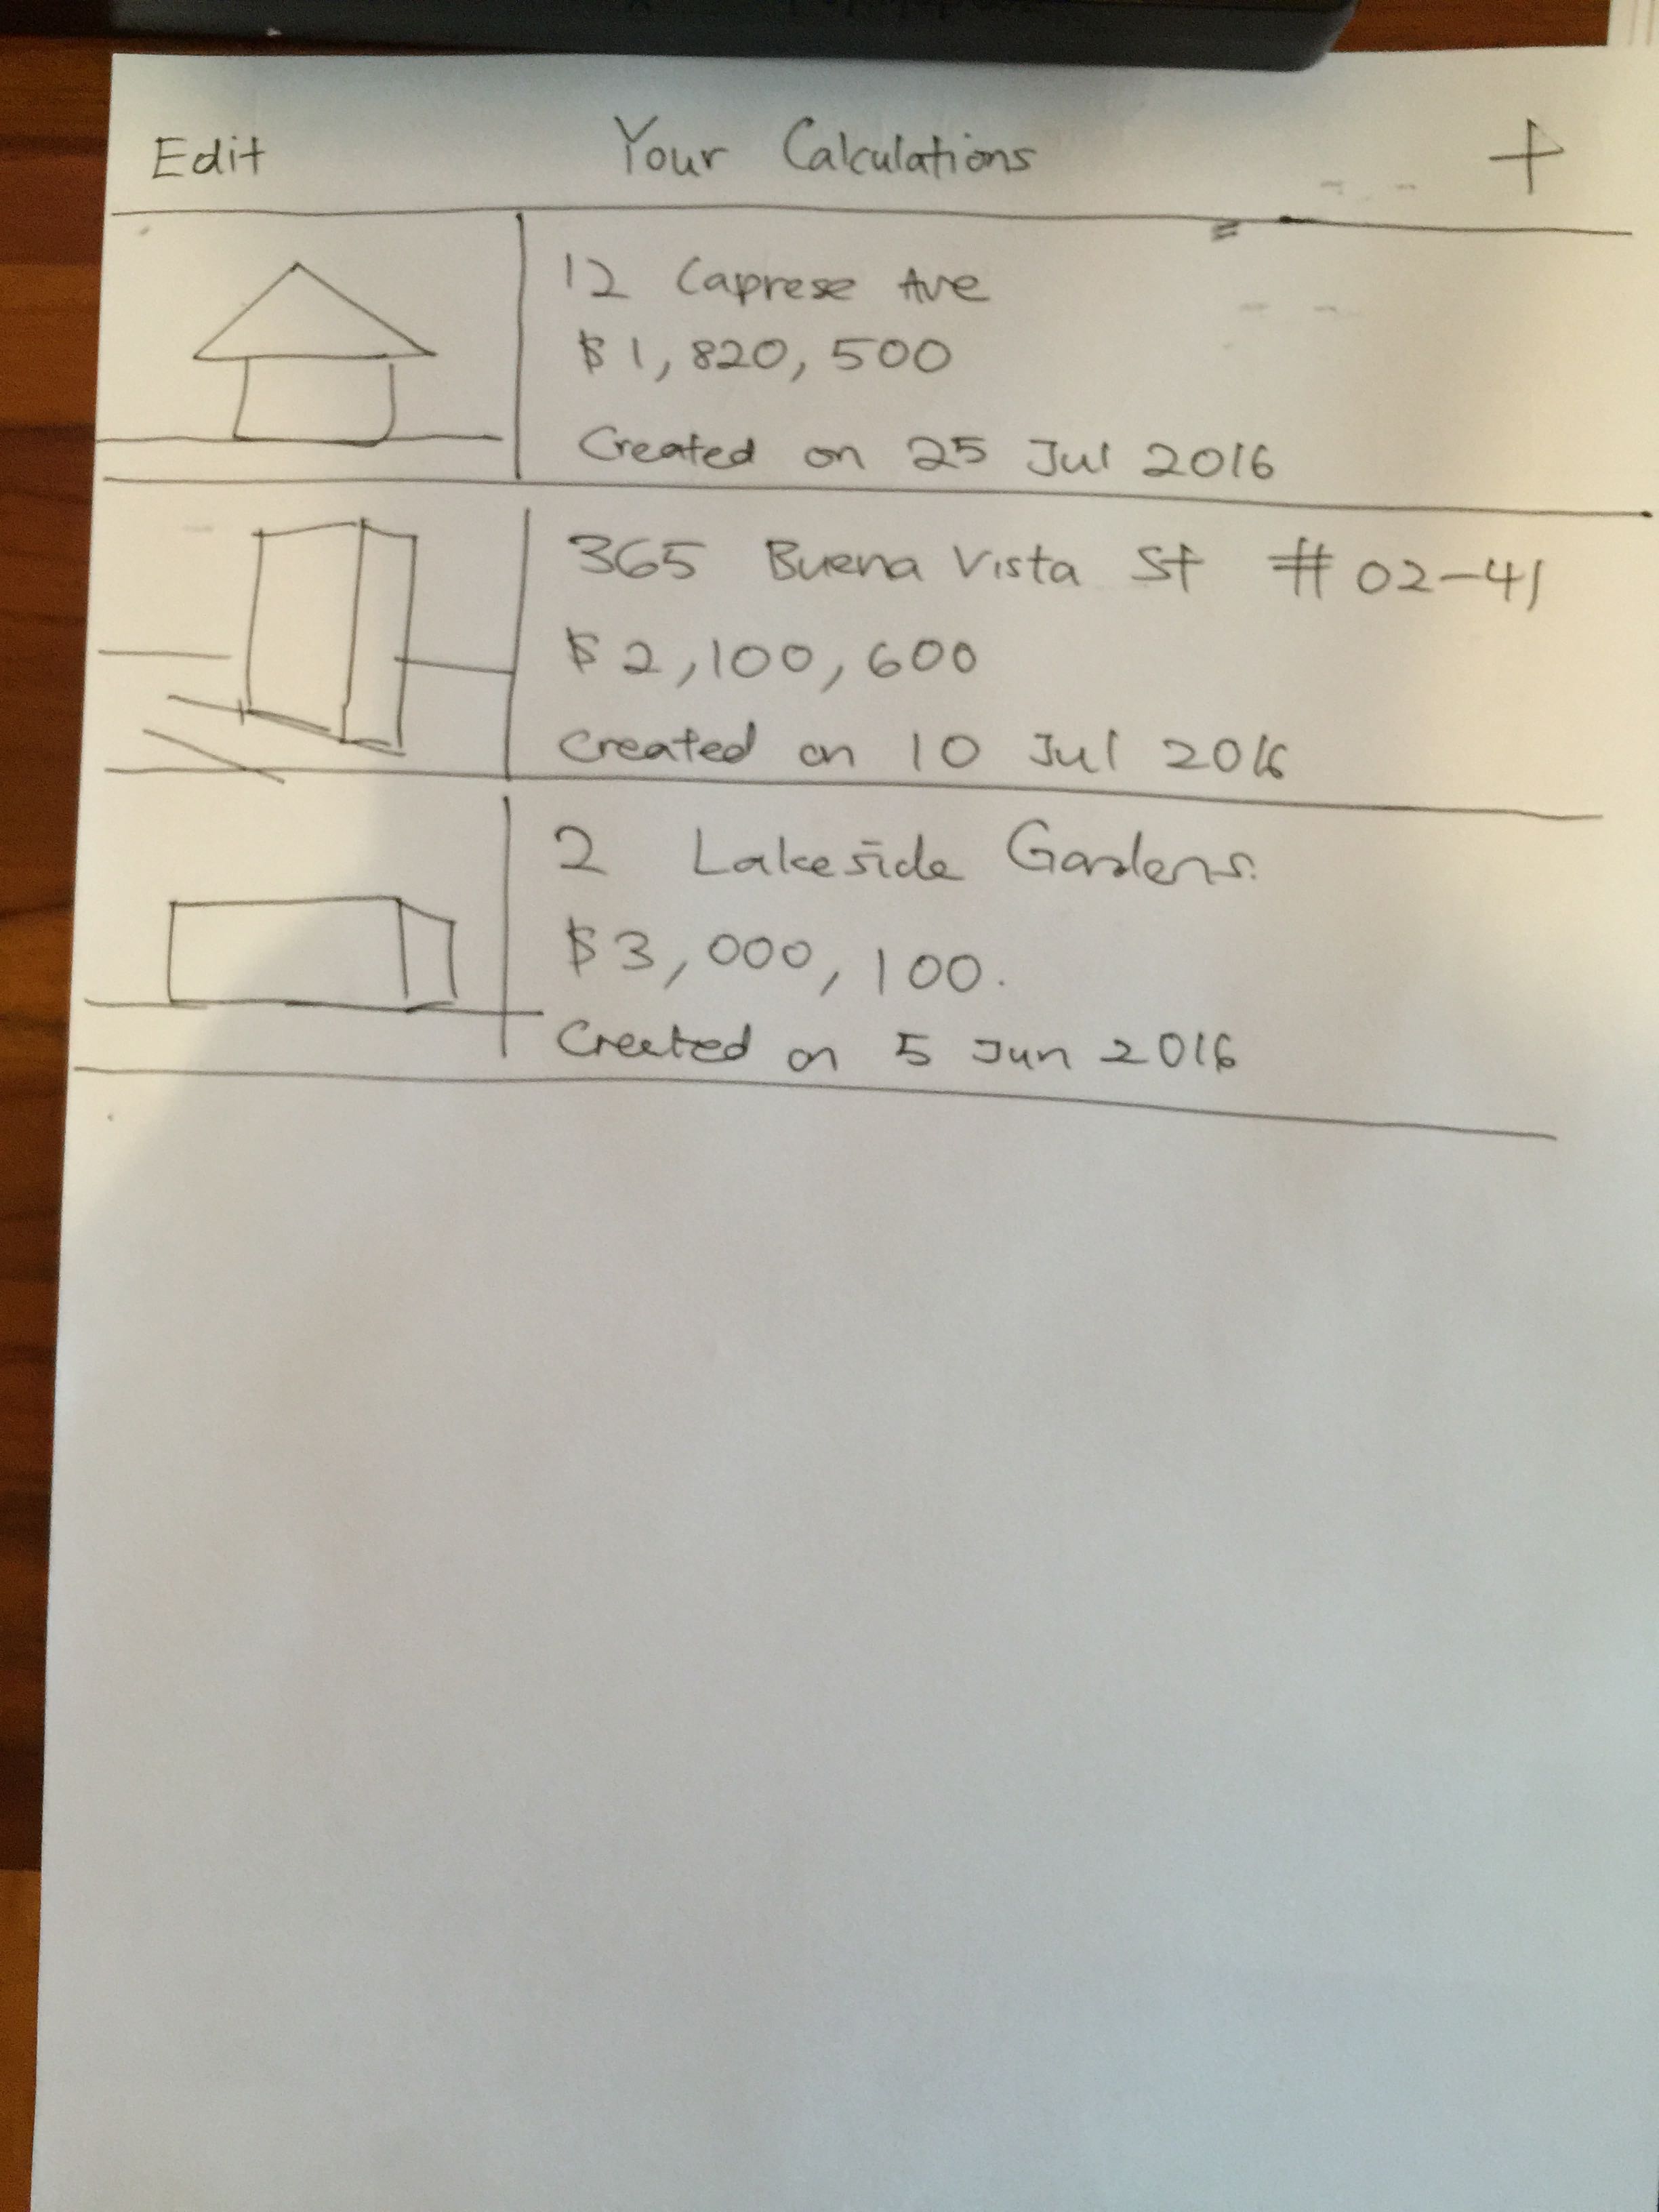 Edit Your Calculations +
12 Caprese Ave
$1,820,500
Created on 25 Jul 2016
365 Buena Vista St #02-41
$2,100,600
Created on 10 Jul 2016
2 Lakeside Gardens.
$3,000,100.
Created on 5 Jun 2016